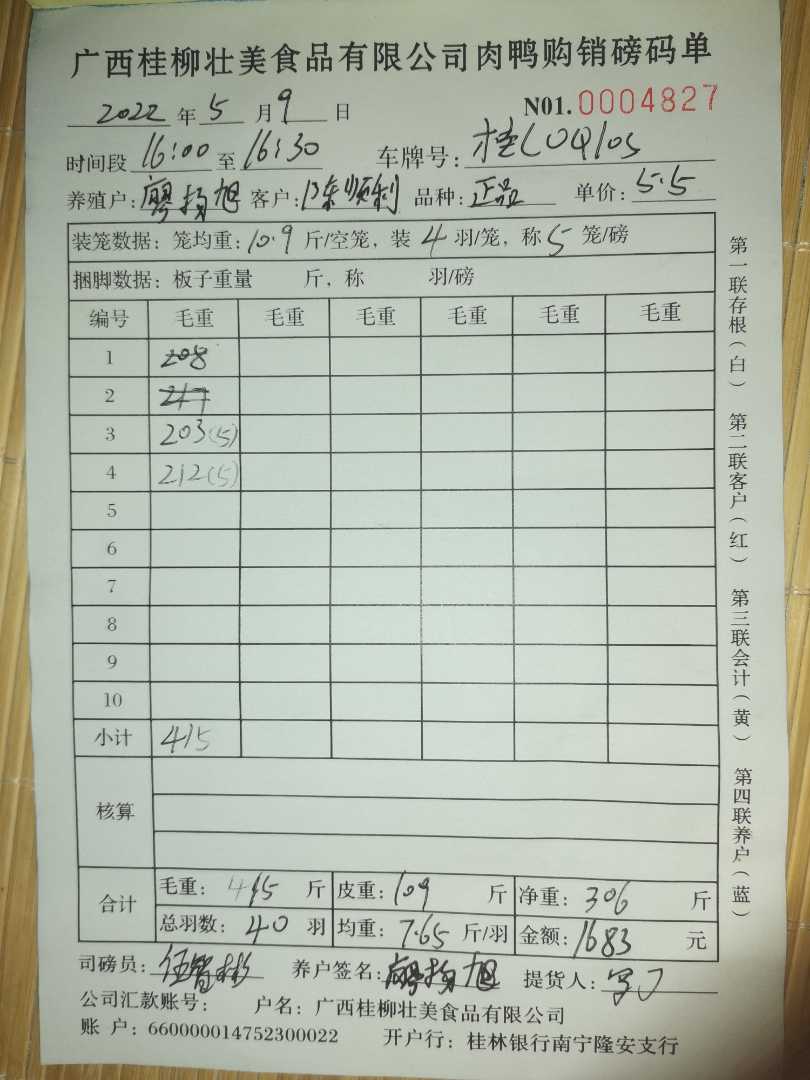 广西桂柳壮美食品有限公司肉鸭购销磅码单
2022 年 5 月 9 日 N01. 0004827
时间段 16:00 至 16:30 车牌号: 桂L0Q105
养殖户: 廖扬旭 客户: 陈顺利 品种: 正品 单价: 5.5
装笼数据: 笼均重: 10.9 斤/空笼, 装 4 羽/笼, 称 5 笼/磅
捆脚数据: 板子重量 斤, 称 羽/磅
编号 毛重 毛重 毛重 毛重 毛重 毛重
1 208
2 217
3 203(5)
4 212(5)
5
6
7
8
9
10
小计 415
核算
合计 毛重: 415 斤 皮重: 109 斤 净重: 306 斤
总羽数: 40 羽 均重: 7.65 斤/羽 金额: 1683 元
司磅员: 伍智彬 养户签名: 廖扬旭 提货人:
公司汇款账号: 户名: 广西桂柳壮美食品有限公司
账 户: 660000014752300022 开户行: 桂林银行南宁隆安支行
第一联存根(白) 第二联客户(红) 第三联会计(黄) 第四联养户(蓝)